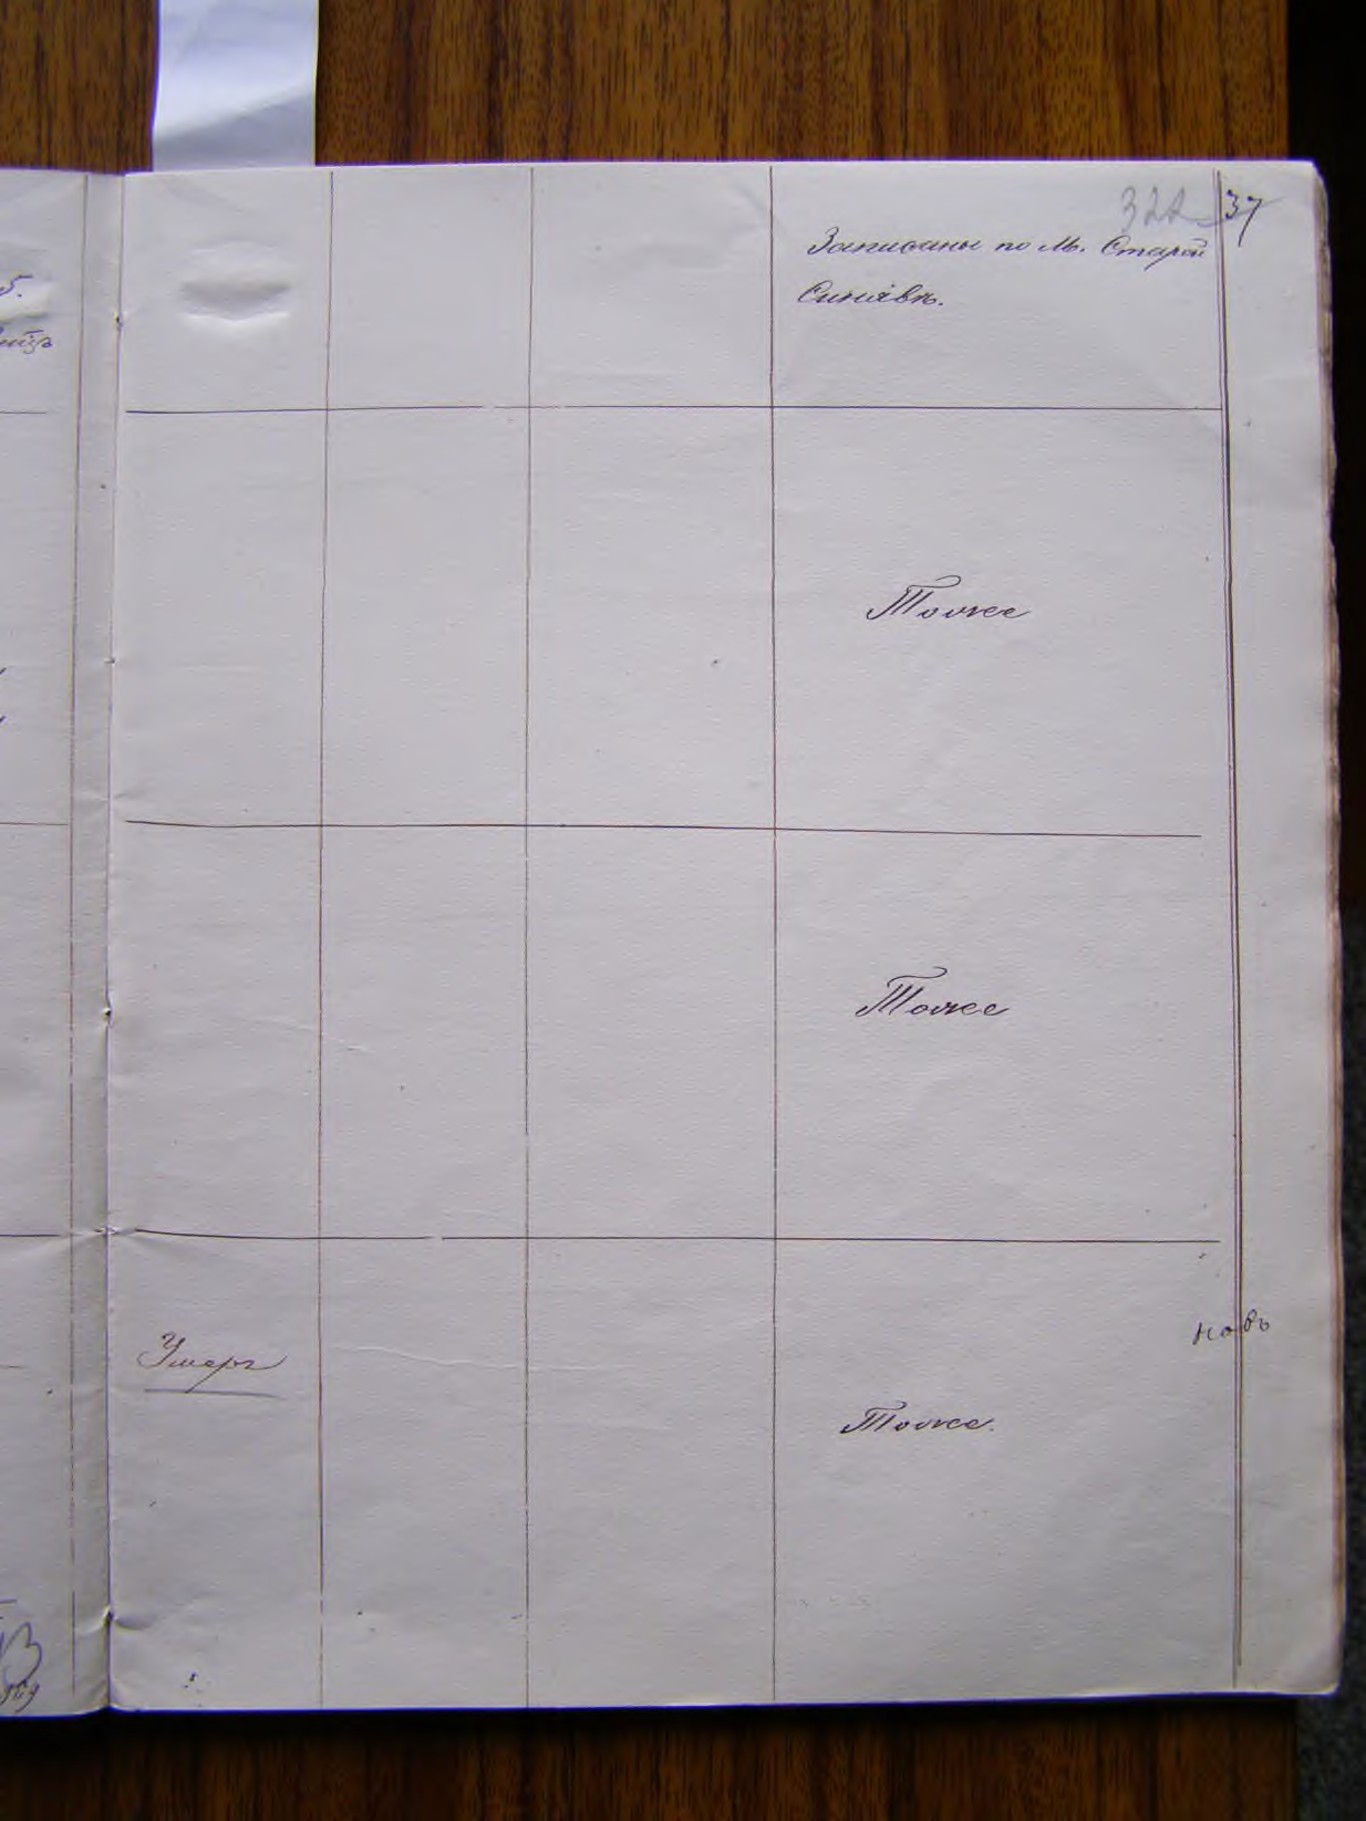 37
Записаны по м. Старой
Синявѣ.
Тоже
Тоже
Умеръ
Тоже.